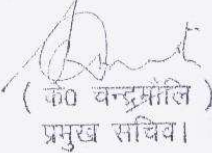 ( के0 चन्द्रमौलि )
प्रमुख सचिव।